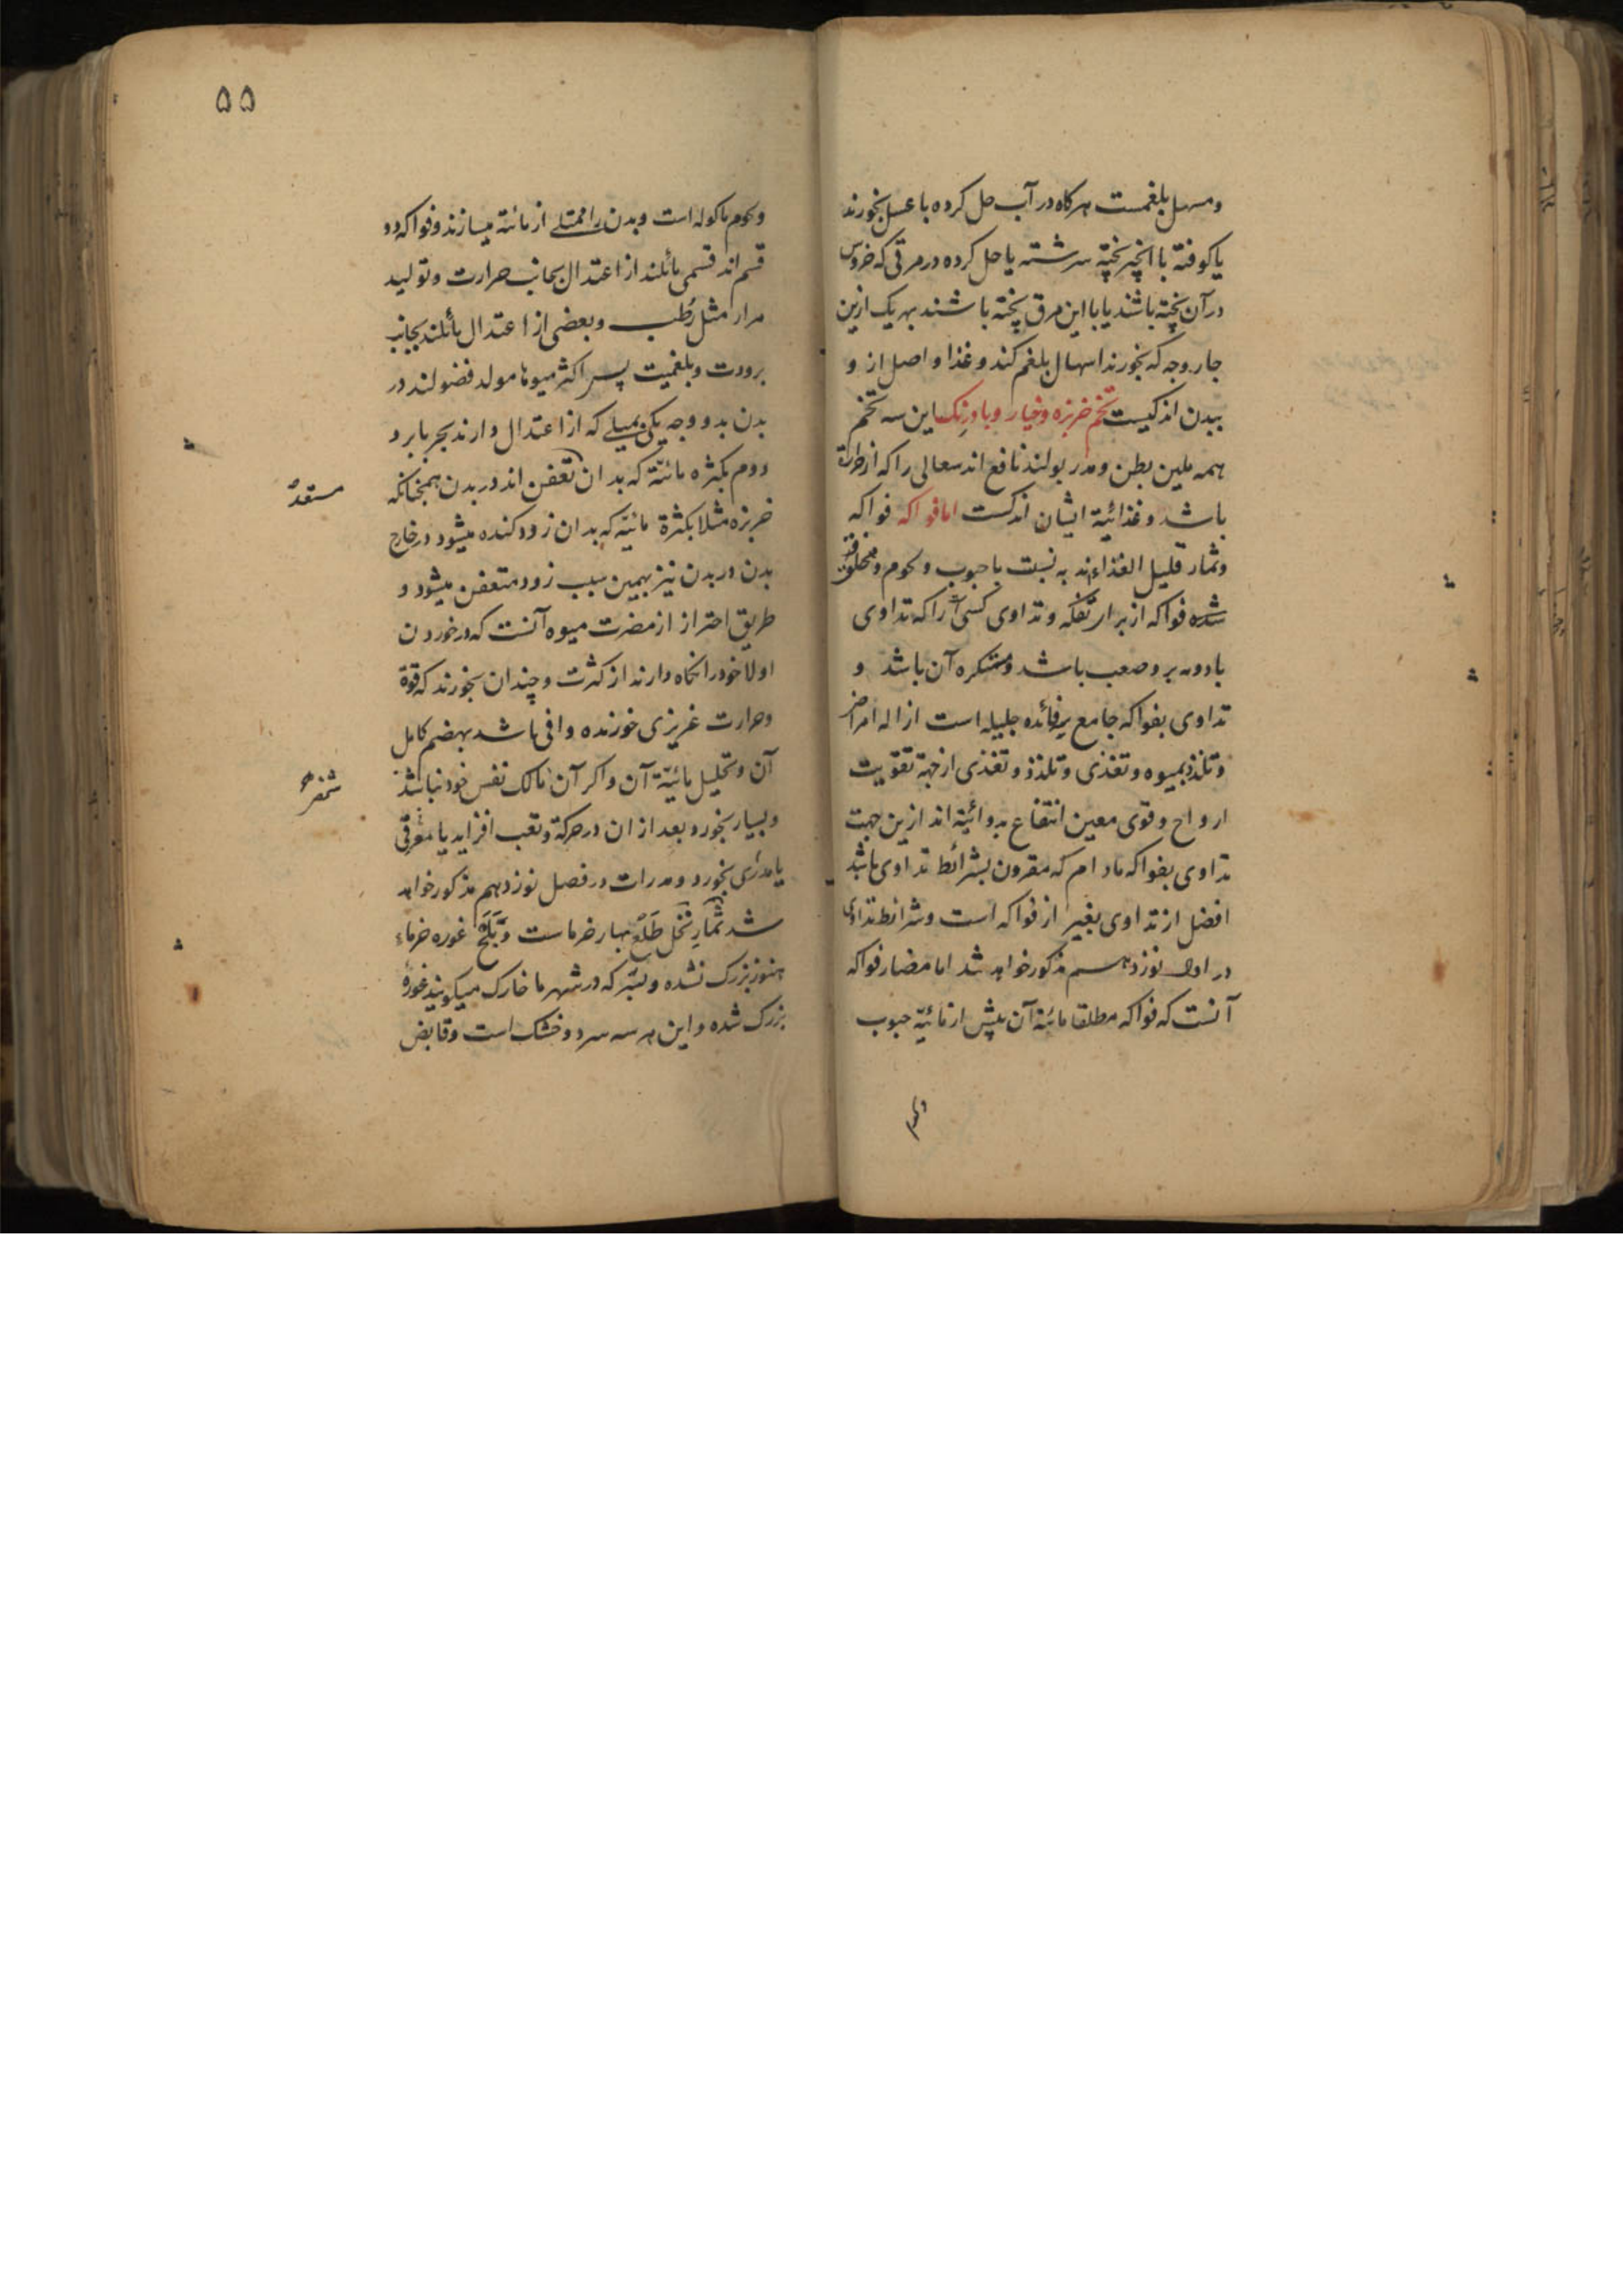 ومسهل بلغمست هرکاه در آب حل کرده با عسل بخورند
یا کوفته با انجیر پخته سرشته یا حل کرده در مرقی که خروس
در آن پخته باشند یا با این مرق پخته باشند بهر یک ازین
چار وجه که بخورند اسهال بلغم کند و غذا واصل از و
ببدن اندکیست تخم خربزه و خیار و بادرنک این سه تخم
همه ملین بطن و مدر بولند نافع اند سعالی را که از حرارة
باشد و غذائیة ایشان اندکست اما فواکه فواکه
و ثمار قلیل الغذاءاند به نسبت با حبوب و لحوم و مخلوق
شده فواکه از برای تفکه و تداوی کسی را که تداوی
بادویه برو صعب باشد و متکره آن باشد و
تداوی بفواکه جامع فائده جلیله است ازاله امراض
و تلذذ بمیوه و تغذی و تلذذ و تغذی از جهة تقویت
ارواح و قوی معین انتفاع بدوائیة اند ازین جهت
تداوی بفواکه مادام که مقرون بشرائط تداوی باشد
افضل از تداوی بغیر از فواکه است و شرائط تداوی
در اول نوزدهم مذکور خواهد شد اما مضار فواکه
آنست که فواکه مطلقا مائیة آن بیش از مائیة حبوب
ولحوم
۵۵
ولحوم ماکوله است و بدن را ممتلی از مائیة میسازند و فواکه دو
قسم اند قسمی مائلند از اعتدال بجانب حرارت و تولید
مرار مثل رطب و بعضی از اعتدال مائلند بجانب
برودت و بلغمیت پس اکثر میوها مولد فضولند در
بدن بدو وجه یکی بمیلی که از اعتدال دارند بحر یا برد
دوم بکثره مائیة که بدان تعفن اند در بدن همچنانکه
مستعد
خربزه مثلا بکثرة مائیة که بدان زود کنده میشود در خارج
بدن در بدن نیز بهمین سبب زود متعفن میشود و
طریق احتراز از مضرت میوه آنست که در خوردن
اولا خود را نکاه دارند از کثرت و چندان بخورند که قوة
و حرارت غریزی خورنده وافی باشد بهضم کامل
آن و تحلیل مائیة آن و اکر آن مالک نفس خود نباشد
و بسیار بخورد بعد از ان در حرکة و تعب افزاید یا معرقی
یا مدری بخورد و مدرات در فصل نوزدهم مذکور خواهد
شد ثمار نخل طلع بهار خرماست و بلح غوره خرماء
هنوز بزرک نشده و بسر که در شهر ما خارک میکویند غوره
بزرک شده و این هر سه سرد و خشک است و قابض